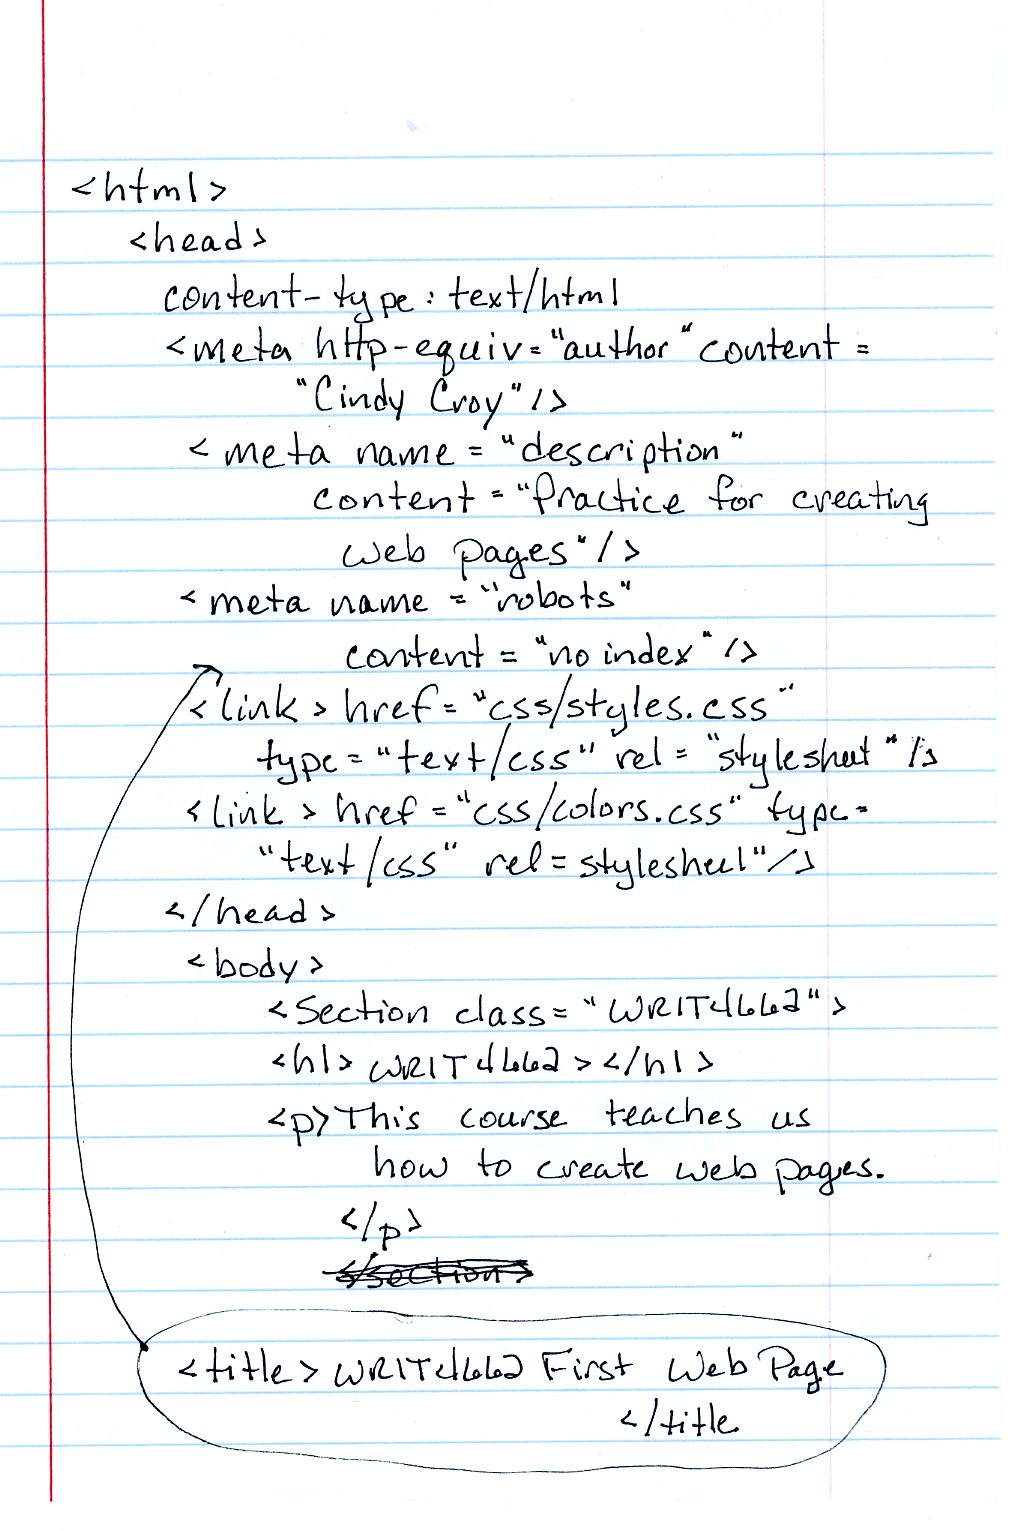 <html>
<head>
content-type: text/html
<meta http-equiv="author" content=
"Cindy Croy"/>
<meta name="description"
content="Practice for creating
web pages"/>
<meta name="robots"
content="no index"/>
<link> href="css/styles.css"
type="text/css" rel="stylesheet"/>
<link> href="css/colors.css" type=
"text/css" rel=stylesheet"/>
</head>
<body>
<Section class="WRIT4662">
<h1> WRIT4662></h1>
<p>This course teaches us
how to create web pages.
</p>
</section>
<title> WRIT4662 First Web Page
</title